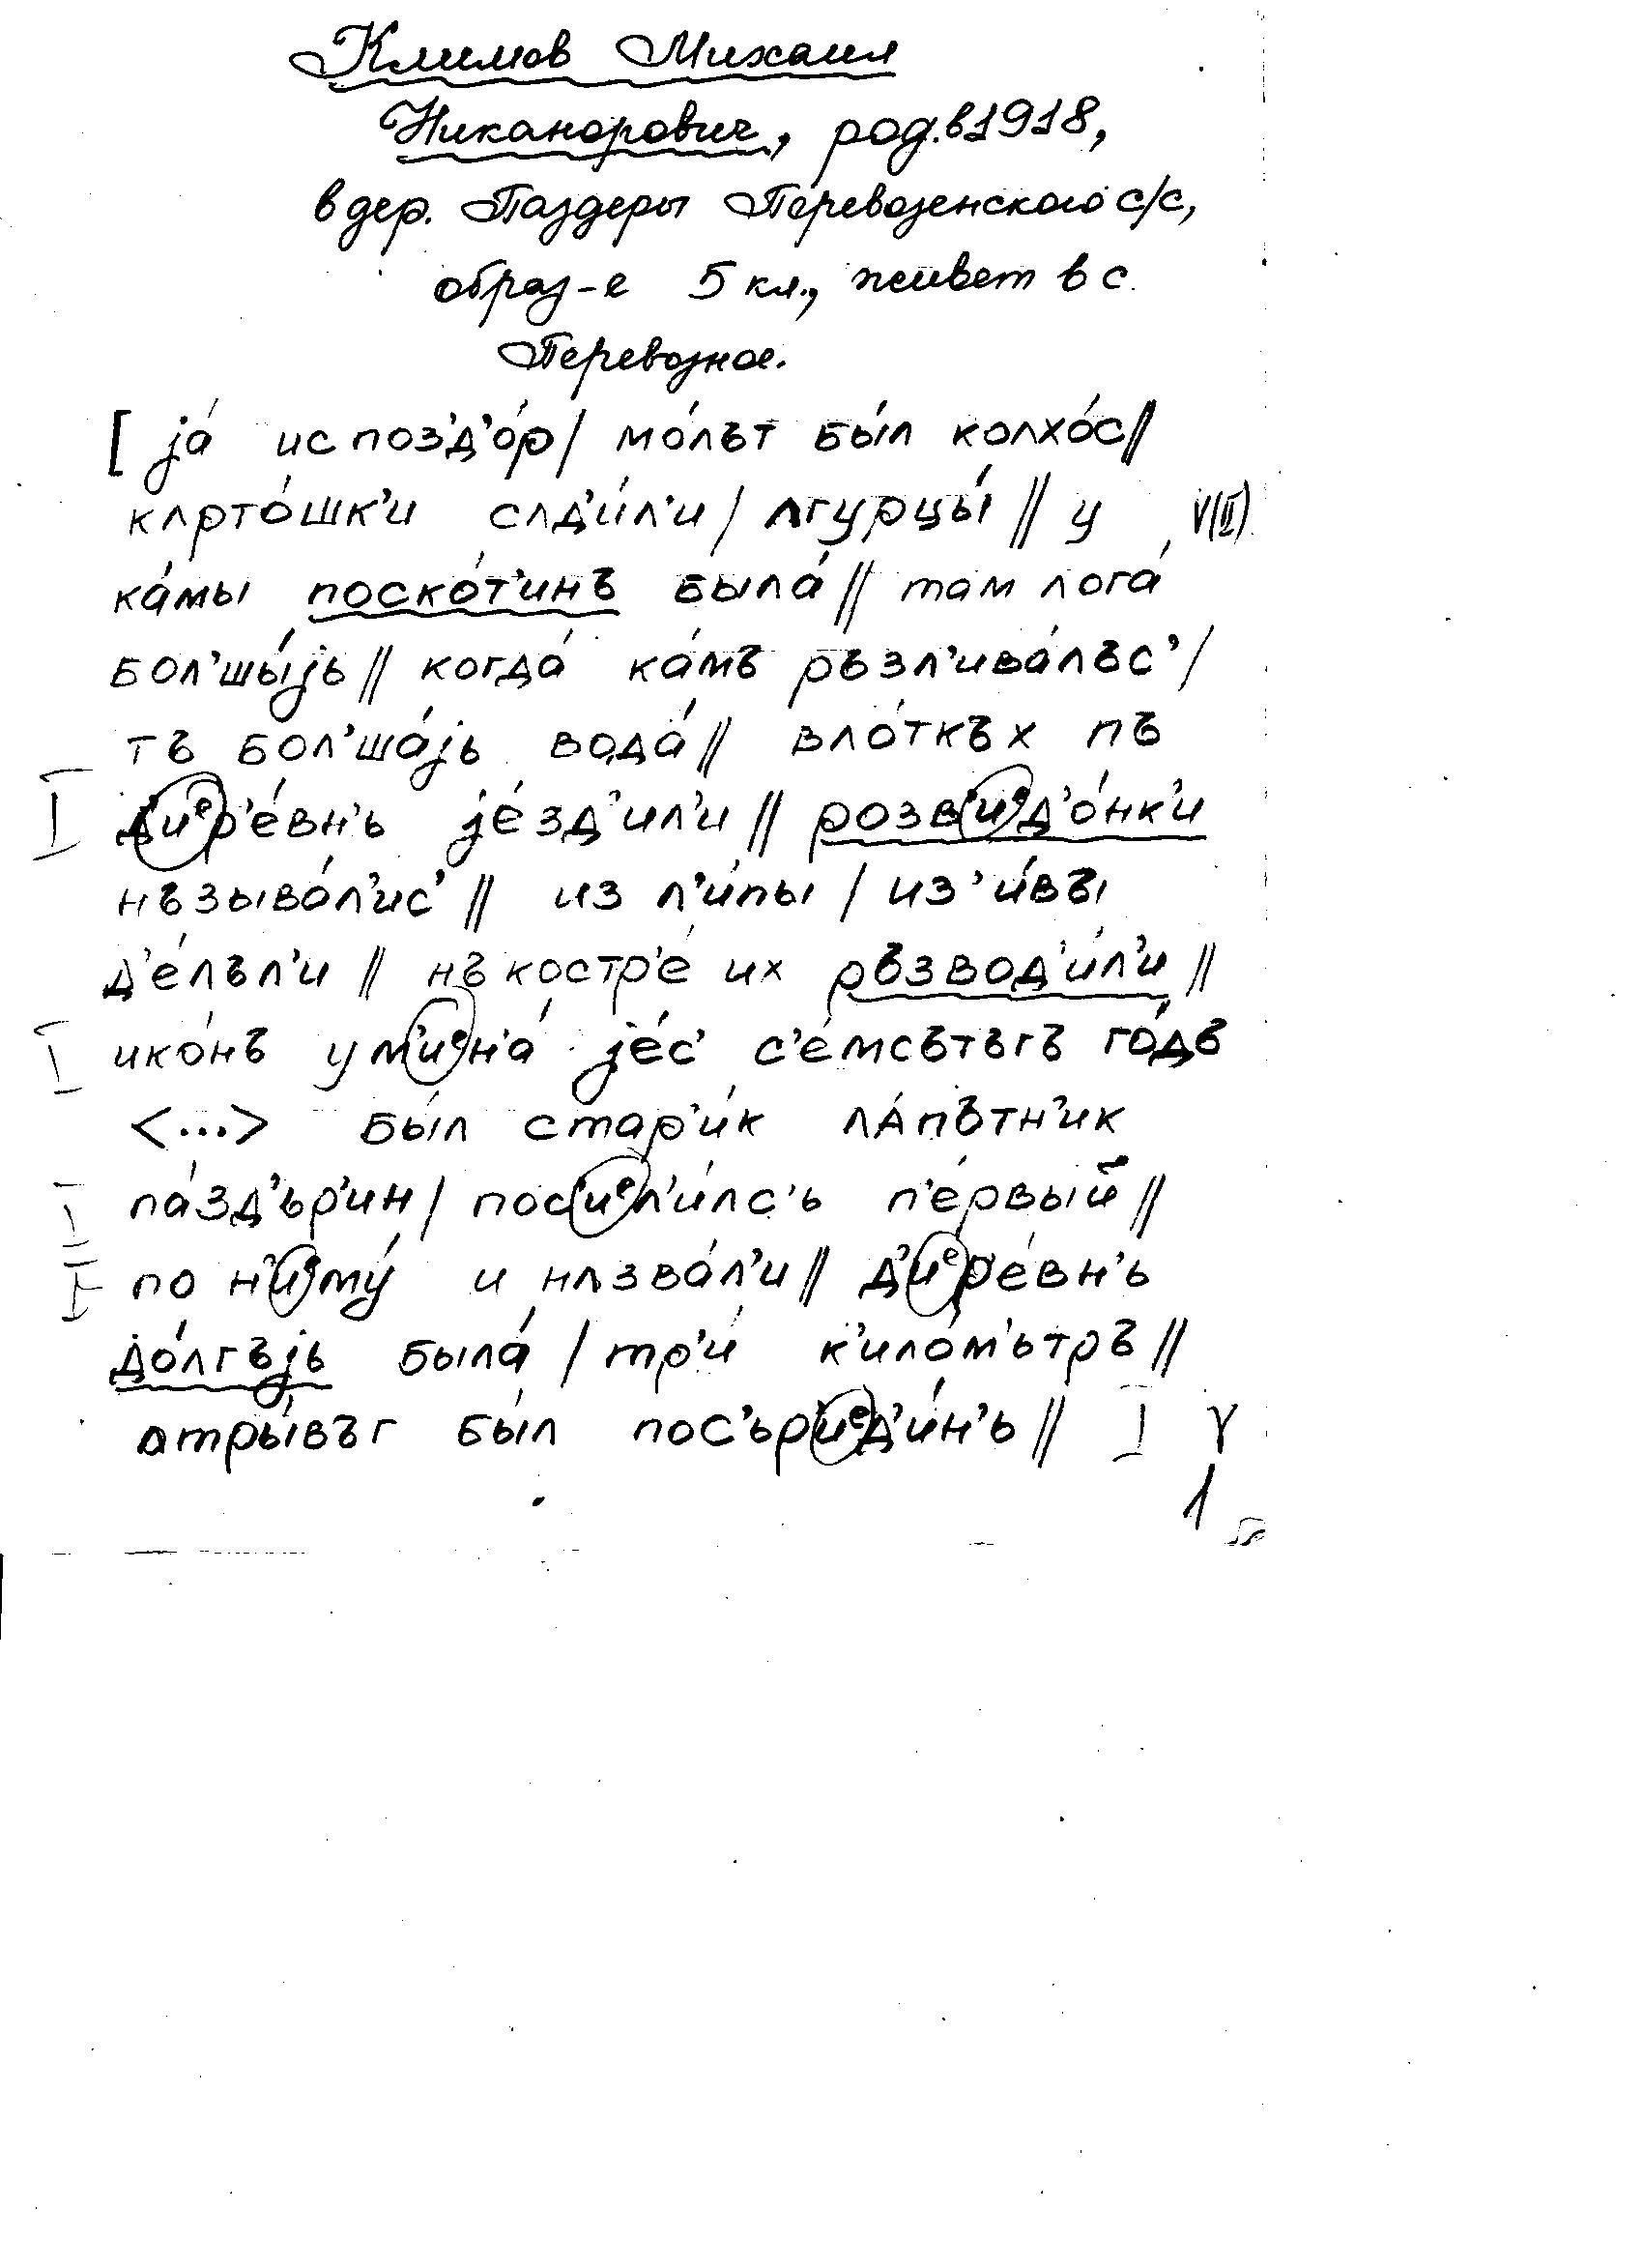 Климов Михаил
Никанорович, род. в 1918,
в дер. Паздеры Перевозенского с/с,
образ-е 5 кл., живет в с.
Перевозное.
[ jа́ испоз'д'о́р / мо́лът бы́л колхо́с //
кʌрто́шк'и сʌд'и́л'и / ʌгурцы́ // у V(II)
ка́мы поско́т'инъ была́ // там лога́
бол'шы́jь // когда́ ка́мъ ръзл'ива́лъс' /
тъ бол'ша́jь вода́ // вло́ткъх пъ
I д'иᵉр'е́вн'ь jе́зд'ил'и // розв'иᵉд'о́нк'и
нъзыва́л'ис' // из л'и́пы / из' и́въı
д'е́лъл'и // нъ костр'е́ их ръзвод'и́л'и //
I ико́нъ у м'иᵉн'а́ jе́с' с'е́мсътъгъ го́дъ
<...> бы́л стар'и́к ла́пътн'ик
I па́зд'ьр'ин / пос'иᵉл'и́лс'ь п'е́рвый //
I по н'иᵉму́ и нʌзва́л'и // д'иᵉр'е́вн'ь
до́лгъjь была́ / тр'и́ к'ило́м'ьтръ //
атры́въг бы́л пос'ьр'иᵉд'и́н'ь // I γ
1